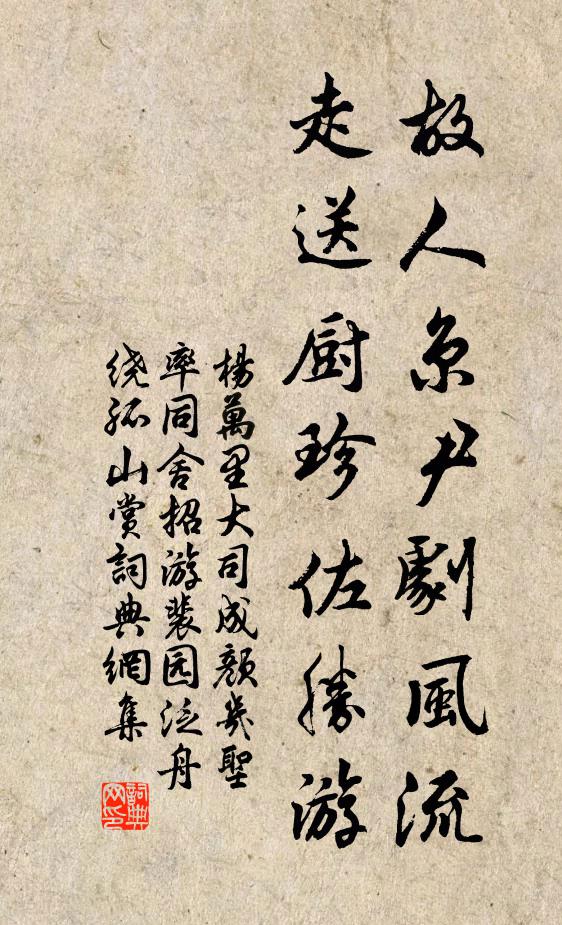 故人京尹劇風流
走送厨珍佐勝游
楊萬里大司成顏㡬聖
率同舍招游裴园泛舟
绕孤山賞詞典網集
詞典
网印